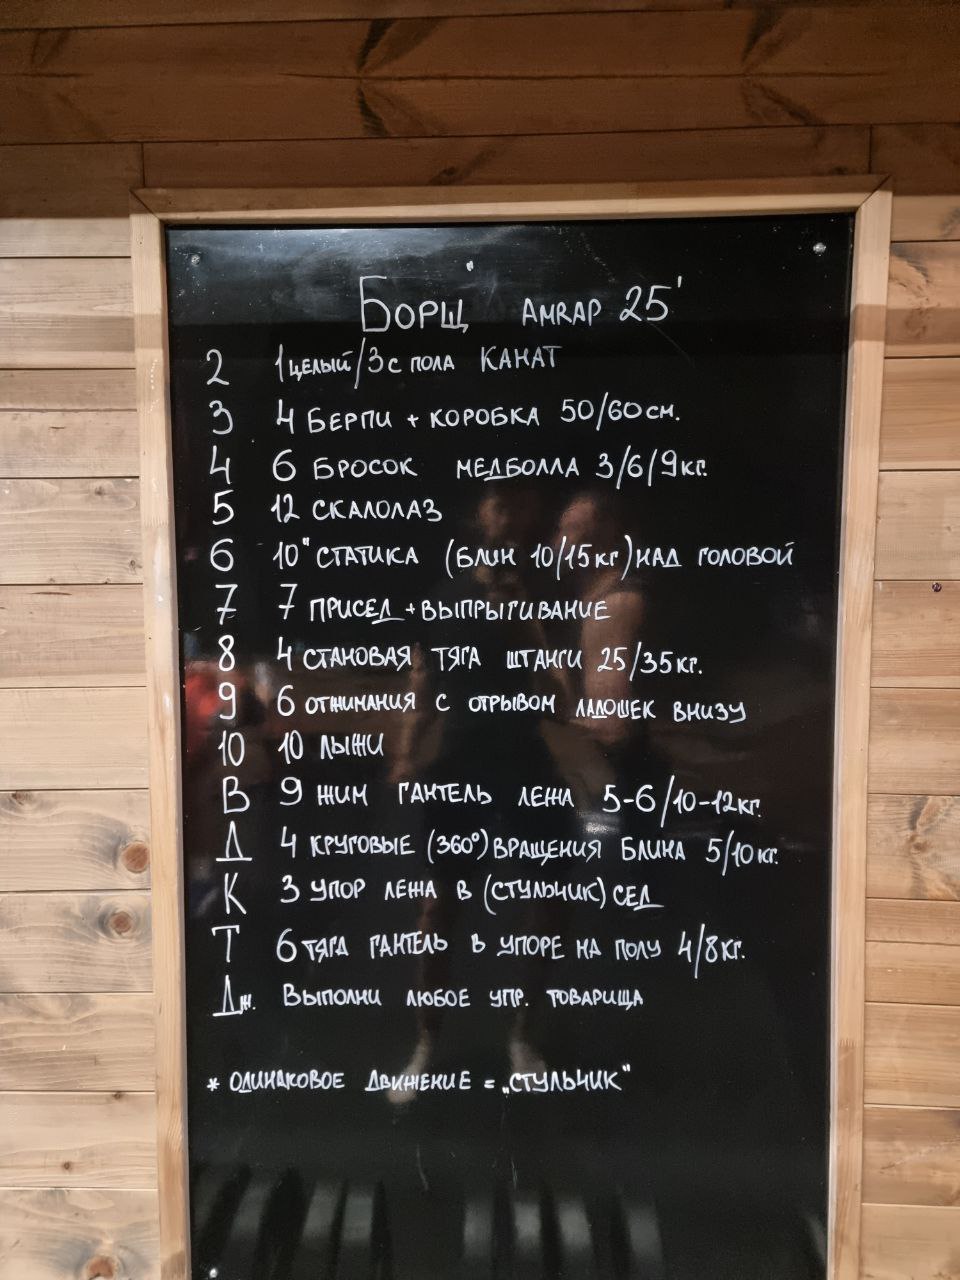 Борщ" AMRAP 25'
2 1 целый/3 с пола КАНАТ
3 4 БЕРПИ + КОРОБКА 50/60 см.
4 6 БРОСОК МЕДБОЛЛА 3/6/9 кг.
5 12 СКАЛОЛАЗ
6 10" СТАТИКА (БЛИН 10/15 кг) НАД ГОЛОВОЙ
7 7 ПРИСЕД + ВЫПРЫГИВАНИЕ
8 4 СТАНОВАЯ ТЯГА ШТАНГИ 25/35 кг.
9 6 ОТЖИМАНИЯ С ОТРЫВОМ ЛАДОШЕК ВНИЗУ
10 10 ЛЫЖИ
В 9 ЖИМ ГАНТЕЛЬ ЛЕЖА 5-6/10-12 кг.
Д 4 КРУГОВЫЕ (360°) ВРАЩЕНИЯ БЛИНА 5/10 кг.
К 3 УПОР ЛЕЖА В (СТУЛЬЧИК) СЕД
Т 6 ТЯГА ГАНТЕЛЬ В УПОРЕ НА ПОЛУ 4/8 кг.
Дж. ВЫПОЛНИ ЛЮБОЕ УПР. ТОВАРИЩА
* ОДИНАКОВОЕ ДВИЖЕНИЕ = „СТУЛЬЧИК"